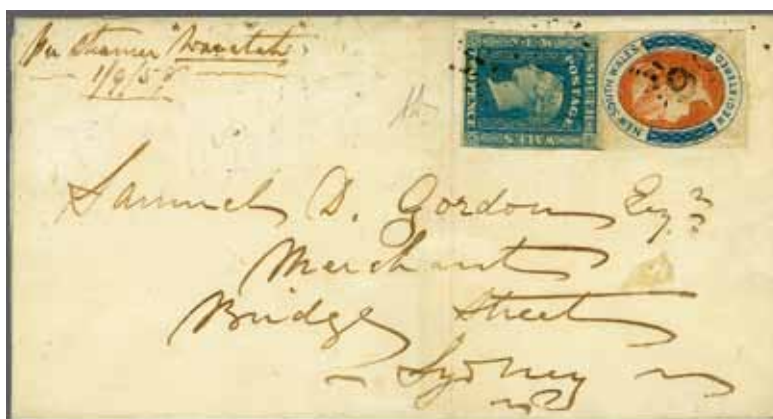 per Steamer "Wonga
1/9/58
SOUTH
POSTAGE
WALES
NEW SOUTH WALES
REGISTERED
Samuel D. Gordon Esqr
Merchant
Bridge Street
Sydney